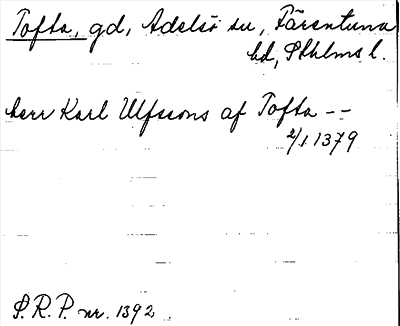 Tofta, gd, Adelsö sn, Färentuna
hd, Sthlms l.
herr Karl Ulfssons af Tofta --
2/1 1379
S.R.P. nr. 1392.